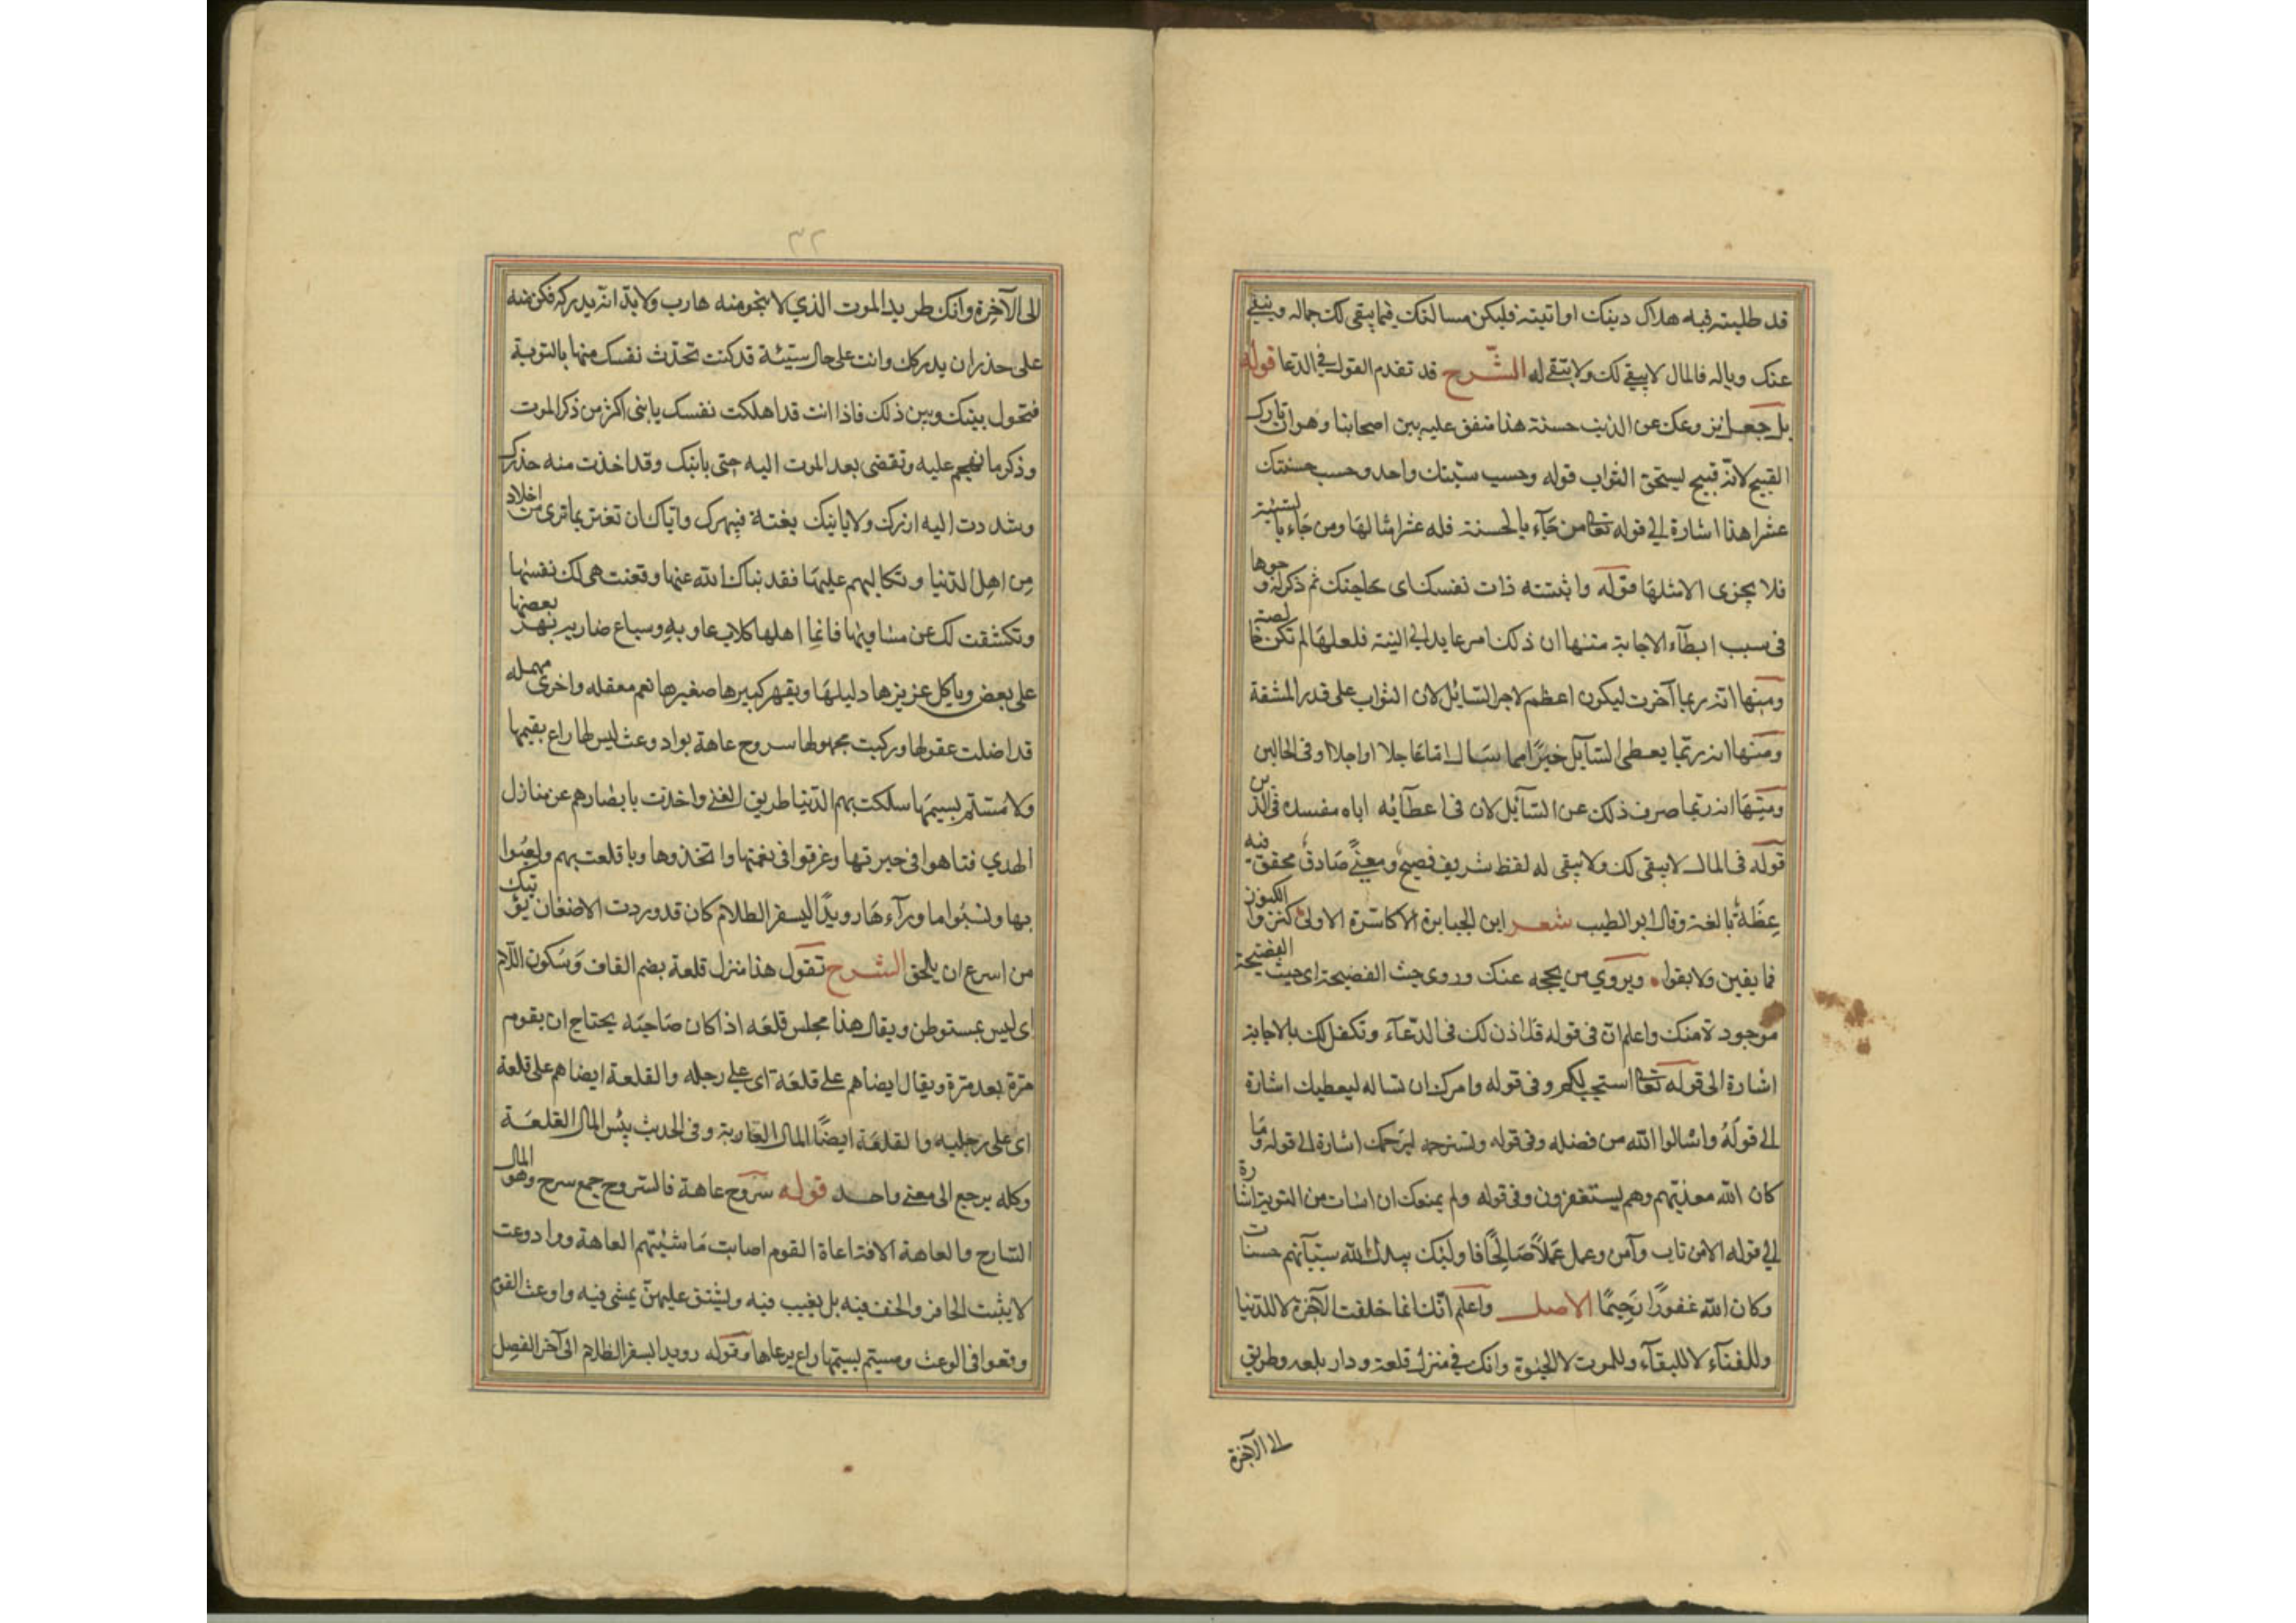 قد طلبته فيه هلاك دينك او اتيته فليكن مسالتك فيما يبقى لك جماله وينفى
عنك وباله فالمال لا يبقى لك ولا تبقى له الشرح قد تقدم القول في الدعا قوله
بل جعل نزوعك عن الذنب حسنة هذا متفق عليه بين اصحابنا وهو ان تارك
القبيح لانه قبيح يستحق الثواب قوله وحسب سيئتك واحد وحسب حسنتك
عشرا هذا اشارة الى قوله تعالى من جآء بالحسنة فله عشر امثالها ومن جاء بالسيئة
فلا يجزى الا مثلها قوله وابثثته ذات نفسك اى حاجتك ثم ذكر له وجوها
فى سبب ابطآء الاجابة منها ان ذلك امر عايد الى النية فلعلها لم تكن خالصة
ومنها انه ربما آخرت ليكون اعظم لاجر السائل لان الثواب على قدر المشقة
ومنها انه ربما يعطى السآيل خيرًا مما سال اما عاجلا او اجلا او فى الحالين
ومنها انه ربما صرف ذلك عن السآئل لان فى اعطآئه اياه مفسده فى الدين
قوله فى المال لا يبقى لك ولا يبقى له لفظ شريف فصيح ومعنًى صادق محقق فيه
عظة بالغة وقال ابو الطيب شعر اين الجبابرة الاكاسرة الاولى كنزوا الكنوز
فما بقين ولا بقوا ويروي من يحجبه عنك وروى حيث الفضيحة اى حيث الفضيحة
موجودة منك واعلم ان فى قوله قد اذن لك فى الدعآء وتكفل لك بالاجابة
اشارة الى قوله تعالى استجب لكم وفى قوله وامرك ان تساله ليعطيك اشارة
الى قوله واسالوا الله من فضله وفى قوله وتسترحمه ليرحمك اشارة الى قوله وما
كان الله معذبهم وهم يستغفرون وفى قوله ولم يمنعك ان اسات من التوبة اشارة
الى قوله الا من تاب وآمن وعمل عملاً صالحًا فاولئك يبدل الله سيآتهم حسنات
وكان الله غفورًا رحيمًا الاصل واعلم انك انما خلقت للآخرة لا للدنيا
وللفنآء لا للبقآء وللموت لا للحيوة وانك في منزل قلعة ودار بلغه وطريق
الى الآخرة
٣٢
الى الآخرة وانك طريد الموت الذي لا ينجو منه هارب ولا بد انه يدركه فكن منه
على حذر ان يدركك وانت على حال سيئة قد كنت تحدث نفسك منها بالتوبة
فيحول بينك وبين ذلك فاذا انت قد اهلكت نفسك يا بنى اكثر من ذكر الموت
وذكر ما تهجم عليه وتفضى بعد الموت اليه حتى ياتيك وقد اخذت منه حذرك
وشددت اليه ازرك ولا ياتيك بغتة فيبهرك واياك ان تغتر بما ترى من اخلاد
من اهل الدنيا وتكالبهم عليها فقد نباك الله عنها ونعت هى لك نفسها
وتكشفت لك عن مساويها فانما اهلها كلاب عاويه وسباع ضاريه يهر بعضها
على بعض وياكل عزيزها دليلها ويقهر كبيرها صغيرها نعم معقله واخرى مهمله
قد اضلت عقولها وركبت مجهولها سروح عاهة بواد وعث ليس لها راع يقيمها
ولا مسيم يسيمها سلكت بهم الدنيا طريق العمى واخذت بابصارهم عن منازل
الهدي فتاهوا فى حيرتها وغرقوا فى نعمتها واتخذوها ربا فلعبت بهم ولعبوا
بها ونسوا ما ورآءها رويدًا يسفر الظلام كان قد وردت الاضغان يوشك
من اسرع ان يلحق الشرح تقول هذا منزل قلعة بضم القاف وسكون اللام
اى ليس بمستوطن ويقال هذا مجلس قلعه اذا كان صاحبه يحتاج ان يقوم
مرة بعد مرة ويقال ايضا هم على قلعة اى على رحله والقلعة ايضا هم على قلعة
اى على رحليه والقلعة ايضًا المال العارية وفى الحديث بئس المال القلعة
وكله يرجع الى معنى واحد قوله سروح عاهة فالسروح جمع سرح وهو المال
السارح والعاهة الافة اعاة القوم اصابت ماشيتهم العاهة وواد وعث
لا يثبت الحافر والخف فيه بل يغيب فيه ويشق عليهن يمشى فيه واوعث القوم
وقعوا فى الوعث ومسيم يسيمها راع يرعاها وقوله رويدا يسفر الظلام الى آخر الفصل